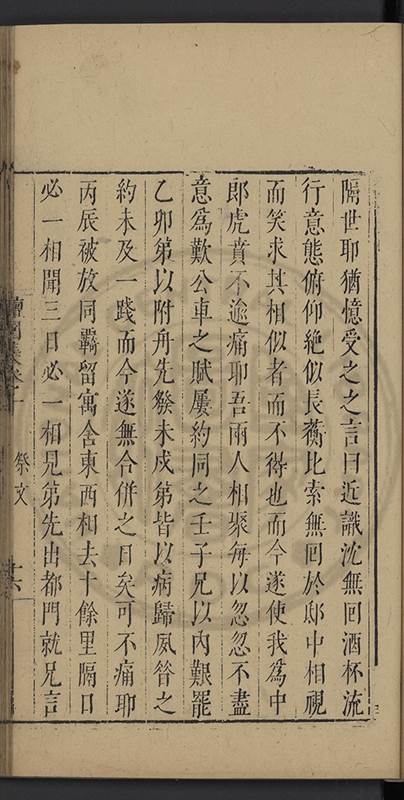 隔世耶猶憶受之之言曰近識沈無回酒杯流
行意態俯仰絶似長蘅比索無回於邸中相視
而笑求其相似者而不得也而今遂使我爲中
郎虎賁不逾痛耶吾兩人相聚每以忽忽不盡
意爲歎公車之賦屢約同之壬子兄以内艱罷
乙卯第以附舟先發未成第皆以病歸夙昝之
約未及一踐而今遂無合併之日矣可不痛耶
丙辰被放同覊留寓舍東西相去十餘里隔日
必一相聞三日必一相見第先出都門就兄言
祭文